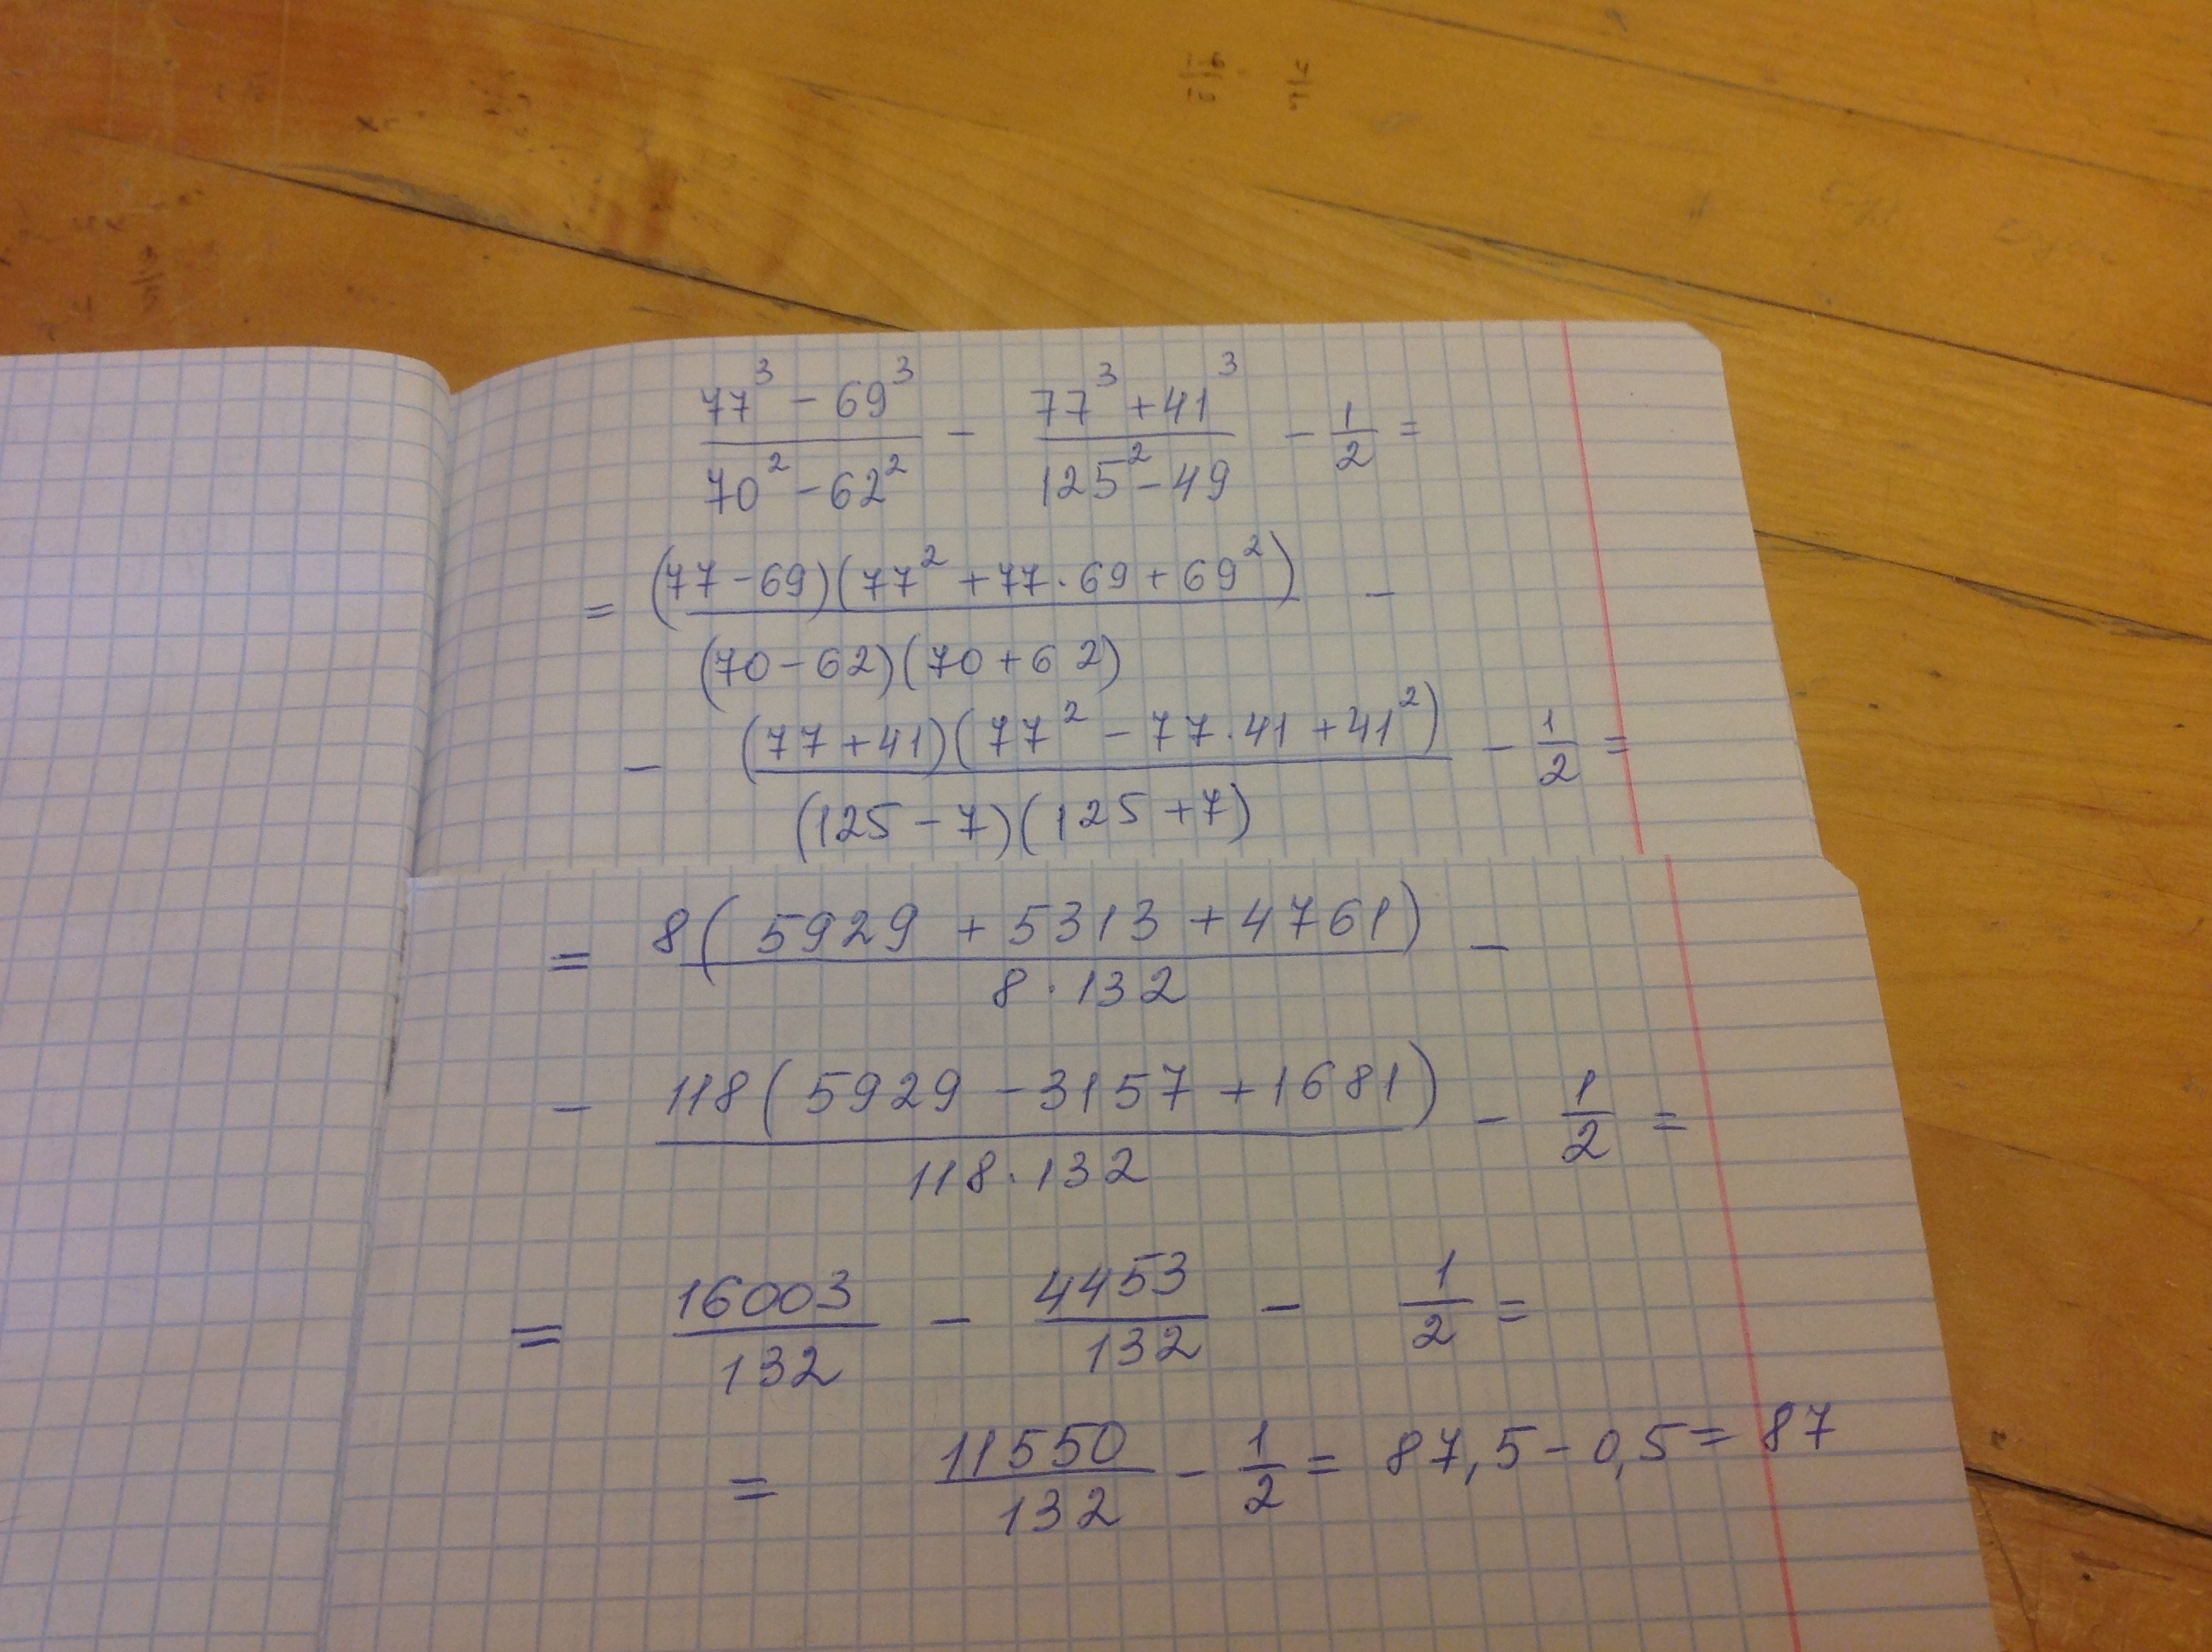 77³ - 69³ / 70² - 62² - 77³ + 41³ / 125² - 49 - 1/2 =
= (77 - 69)(77² + 77·69 + 69²) / (70 - 62)(70 + 62) -
- (77 + 41)(77² - 77·41 + 41²) / (125 - 7)(125 + 7) - 1/2 =
= 8(5929 + 5313 + 4761) / 8·132 -
- 118(5929 - 3157 + 1681) / 118·132 - 1/2 =
= 16003/132 - 4453/132 - 1/2 =
= 11550/132 - 1/2 = 87,5 - 0,5 = 87